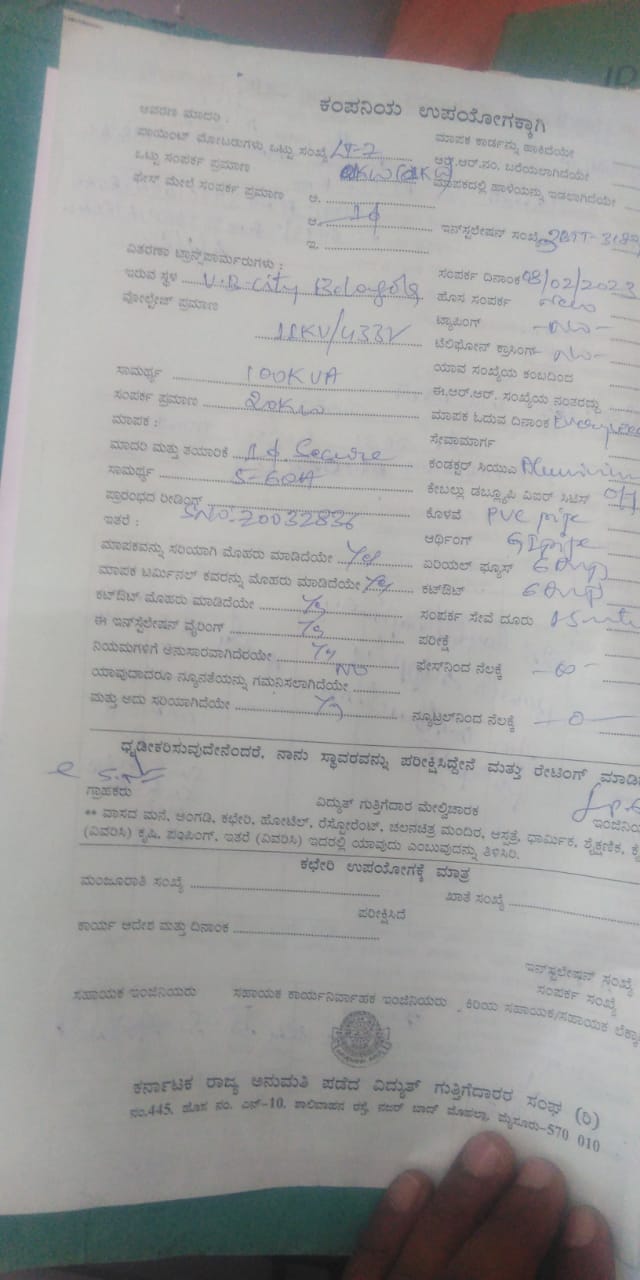 ಕಂಪನಿಯ ಉಪಯೋಗಕ್ಕಾಗಿ
ಆವರಣ ಮಾದರಿ :
ಮಾಪಕ ಕಾರ್ಡನ್ನು ಹಾಕಿದೆಯೇ
ಪಾಯಿಂಟ್ ಮೋಟರುಗಳು ಒಟ್ಟು ಸಂಖ್ಯೆ LT-2
ಆರ್.ಆರ್.ನಂ. ಬರೆಯಲಾಗಿದೆಯೇ
ಒಟ್ಟು ಸಂಪರ್ಕ ಪ್ರಮಾಣ
ಮಾಪಕದಲ್ಲಿ ಹಾಳೆಯನ್ನು ಇಡಲಾಗಿದೆಯೇ
ಫೇಸ್ ಮೇಲೆ ಸಂಪರ್ಕ ಪ್ರಮಾಣ ಅ.
ಆ. 1ϕ
ಇನ್‌ಸ್ಟಲೇಷನ್ ಸಂಖ್ಯೆ
ಇ.
ವಿತರಣಾ ಟ್ರಾನ್ಸ್‌ಪಾರ್ಮರುಗಳು :
ಸಂಪರ್ಕ ದಿನಾಂಕ 08/02/2023
ಇರುವ ಸ್ಥಳ V.B-City Belagola
ಹೊಸ ಸಂಪರ್ಕ New
ವೋಲ್ಟೇಜ್ ಪ್ರಮಾಣ
ಟ್ಯಾಪಿಂಗ್ -No-
11KV/433V
ಟೆಲಿಫೋನ್ ಕ್ರಾಸಿಂಗ್ -No-
ಯಾವ ಸಂಖ್ಯೆಯ ಕಂಬದಿಂದ
ಸಾಮರ್ಥ್ಯ 100KVA
ಈ.ಆರ್.ಆರ್. ಸಂಖ್ಯೆಯ ನಂತರದ್ದು
ಸಂಪರ್ಕ ಪ್ರಮಾಣ 20KW
ಮಾಪಕ ಓದುವ ದಿನಾಂಕ
ಮಾಪಕ :
ಸೇವಾಮಾರ್ಗ
ಮಾದರಿ ಮತ್ತು ತಯಾರಿಕೆ 1ϕ Secure
ಕಂಡಕ್ಟರ್ ಸಿಯುಎ Aluminium
ಸಾಮರ್ಥ್ಯ 5-60A
ಕೇಬಲ್ಲು ಡಬ್ಲ್ಯೂಪಿ ಎಐರ್ ಸಿಟಿಸ್ O/H
ಪ್ರಾರಂಭದ ರೀಡಿಂಗ್
ಕೊಳವೆ PVC pipe
ಇತರೆ : SNO-20032836
ಆರ್ಥಿಂಗ್ GI pipe
ಮಾಪಕವನ್ನು ಸರಿಯಾಗಿ ಮೊಹರು ಮಾಡಿದೆಯೇ Yes
ಏರಿಯಲ್ ಫ್ಯೂಸ್ 60Amp
ಮಾಪಕ ಟರ್ಮಿನಲ್ ಕವರನ್ನು ಮೊಹರು ಮಾಡಿದೆಯೇ Yes
ಕಟ್‌ಔಟ್ 60Amp
ಕಟ್‌ಔಟ್ ಮೊಹರು ಮಾಡಿದೆಯೇ Yes
ಸಂಪರ್ಕ ಸೇವೆ ದೂರು
ಈ ಇನ್‌ಸ್ಟಲೇಷನ್ ವೈರಿಂಗ್ Yes
ಪರೀಕ್ಷೆ
ನಿಯಮಗಳಿಗೆ ಅನುಸಾರವಾಗಿದೆಯೇ Yes
ಫೇಸ್‌ನಿಂದ ನೆಲಕ್ಕೆ -∞-
ಯಾವುದಾದರೂ ನ್ಯೂನತೆಯನ್ನು ಗಮನಿಸಲಾಗಿದೆಯೇ NO
ಮತ್ತು ಅದು ಸರಿಯಾಗಿದೆಯೇ Yes
ನ್ಯೂಟ್ರಲ್‌ನಿಂದ ನೆಲಕ್ಕೆ -0-
ಧೃಡೀಕರಿಸುವುದೇನೆಂದರೆ, ನಾನು ಸ್ಥಾವರವನ್ನು ಪರೀಕ್ಷಿಸಿದ್ದೇನೆ ಮತ್ತು ರೇಟಿಂಗ್
ಗ್ರಾಹಕರು
ವಿದ್ಯುತ್ ಗುತ್ತಿಗೆದಾರ ಮೇಲ್ವಿಚಾರಕ
** ವಾಸದ ಮನೆ, ಅಂಗಡಿ, ಕಛೇರಿ, ಹೋಟೆಲ್, ರೆಸ್ಟೋರೆಂಟ್, ಚಲನಚಿತ್ರ ಮಂದಿರ, ಆಸ್ಪತ್ರೆ, ಧಾರ್ಮಿಕ, ಶೈಕ್ಷಣಿಕ,
(ವಿವರಿಸಿ) ಕೃಷಿ, ಪಂಪಿಂಗ್, ಇತರೆ (ವಿವರಿಸಿ) ಇದರಲ್ಲಿ ಯಾವುದು ಎಂಬುವುದನ್ನು ತಿಳಿಸಿರಿ.
ಕಛೇರಿ ಉಪಯೋಗಕ್ಕೆ ಮಾತ್ರ
ಮಂಜೂರಾತಿ ಸಂಖ್ಯೆ
ಖಾತೆ ಸಂಖ್ಯೆ
ಪರೀಕ್ಷಿಸಿದೆ
ಕಾರ್ಯ ಆದೇಶ ಮತ್ತು ದಿನಾಂಕ
ಇನ್‌ಸ್ಟಲೇಷನ್ ಸಂಖ್ಯೆ
ಸಂಪರ್ಕ ಸಂಖ್ಯೆ
ಸಹಾಯಕ ಇಂಜಿನಿಯರು ಸಹಾಯಕ ಕಾರ್ಯನಿರ್ವಾಹಕ ಇಂಜಿನಿಯರು ಕಿರಿಯ ಸಹಾಯಕ/ಸಹಾಯಕ
ಕರ್ನಾಟಕ ರಾಜ್ಯ ಅನುಮತಿ ಪಡೆದ ವಿದ್ಯುತ್ ಗುತ್ತಿಗೆದಾರರ ಸಂಘ (ರಿ)
ನಂ.445, ಹೊಸ ನಂ. ಎನ್-10, ಶಾಲಿವಾಹನ ರಸ್ತೆ, ನಜರ್ ಬಾದ್ ಮೊಹಲ್ಲಾ, ಮೈಸೂರು-570 010